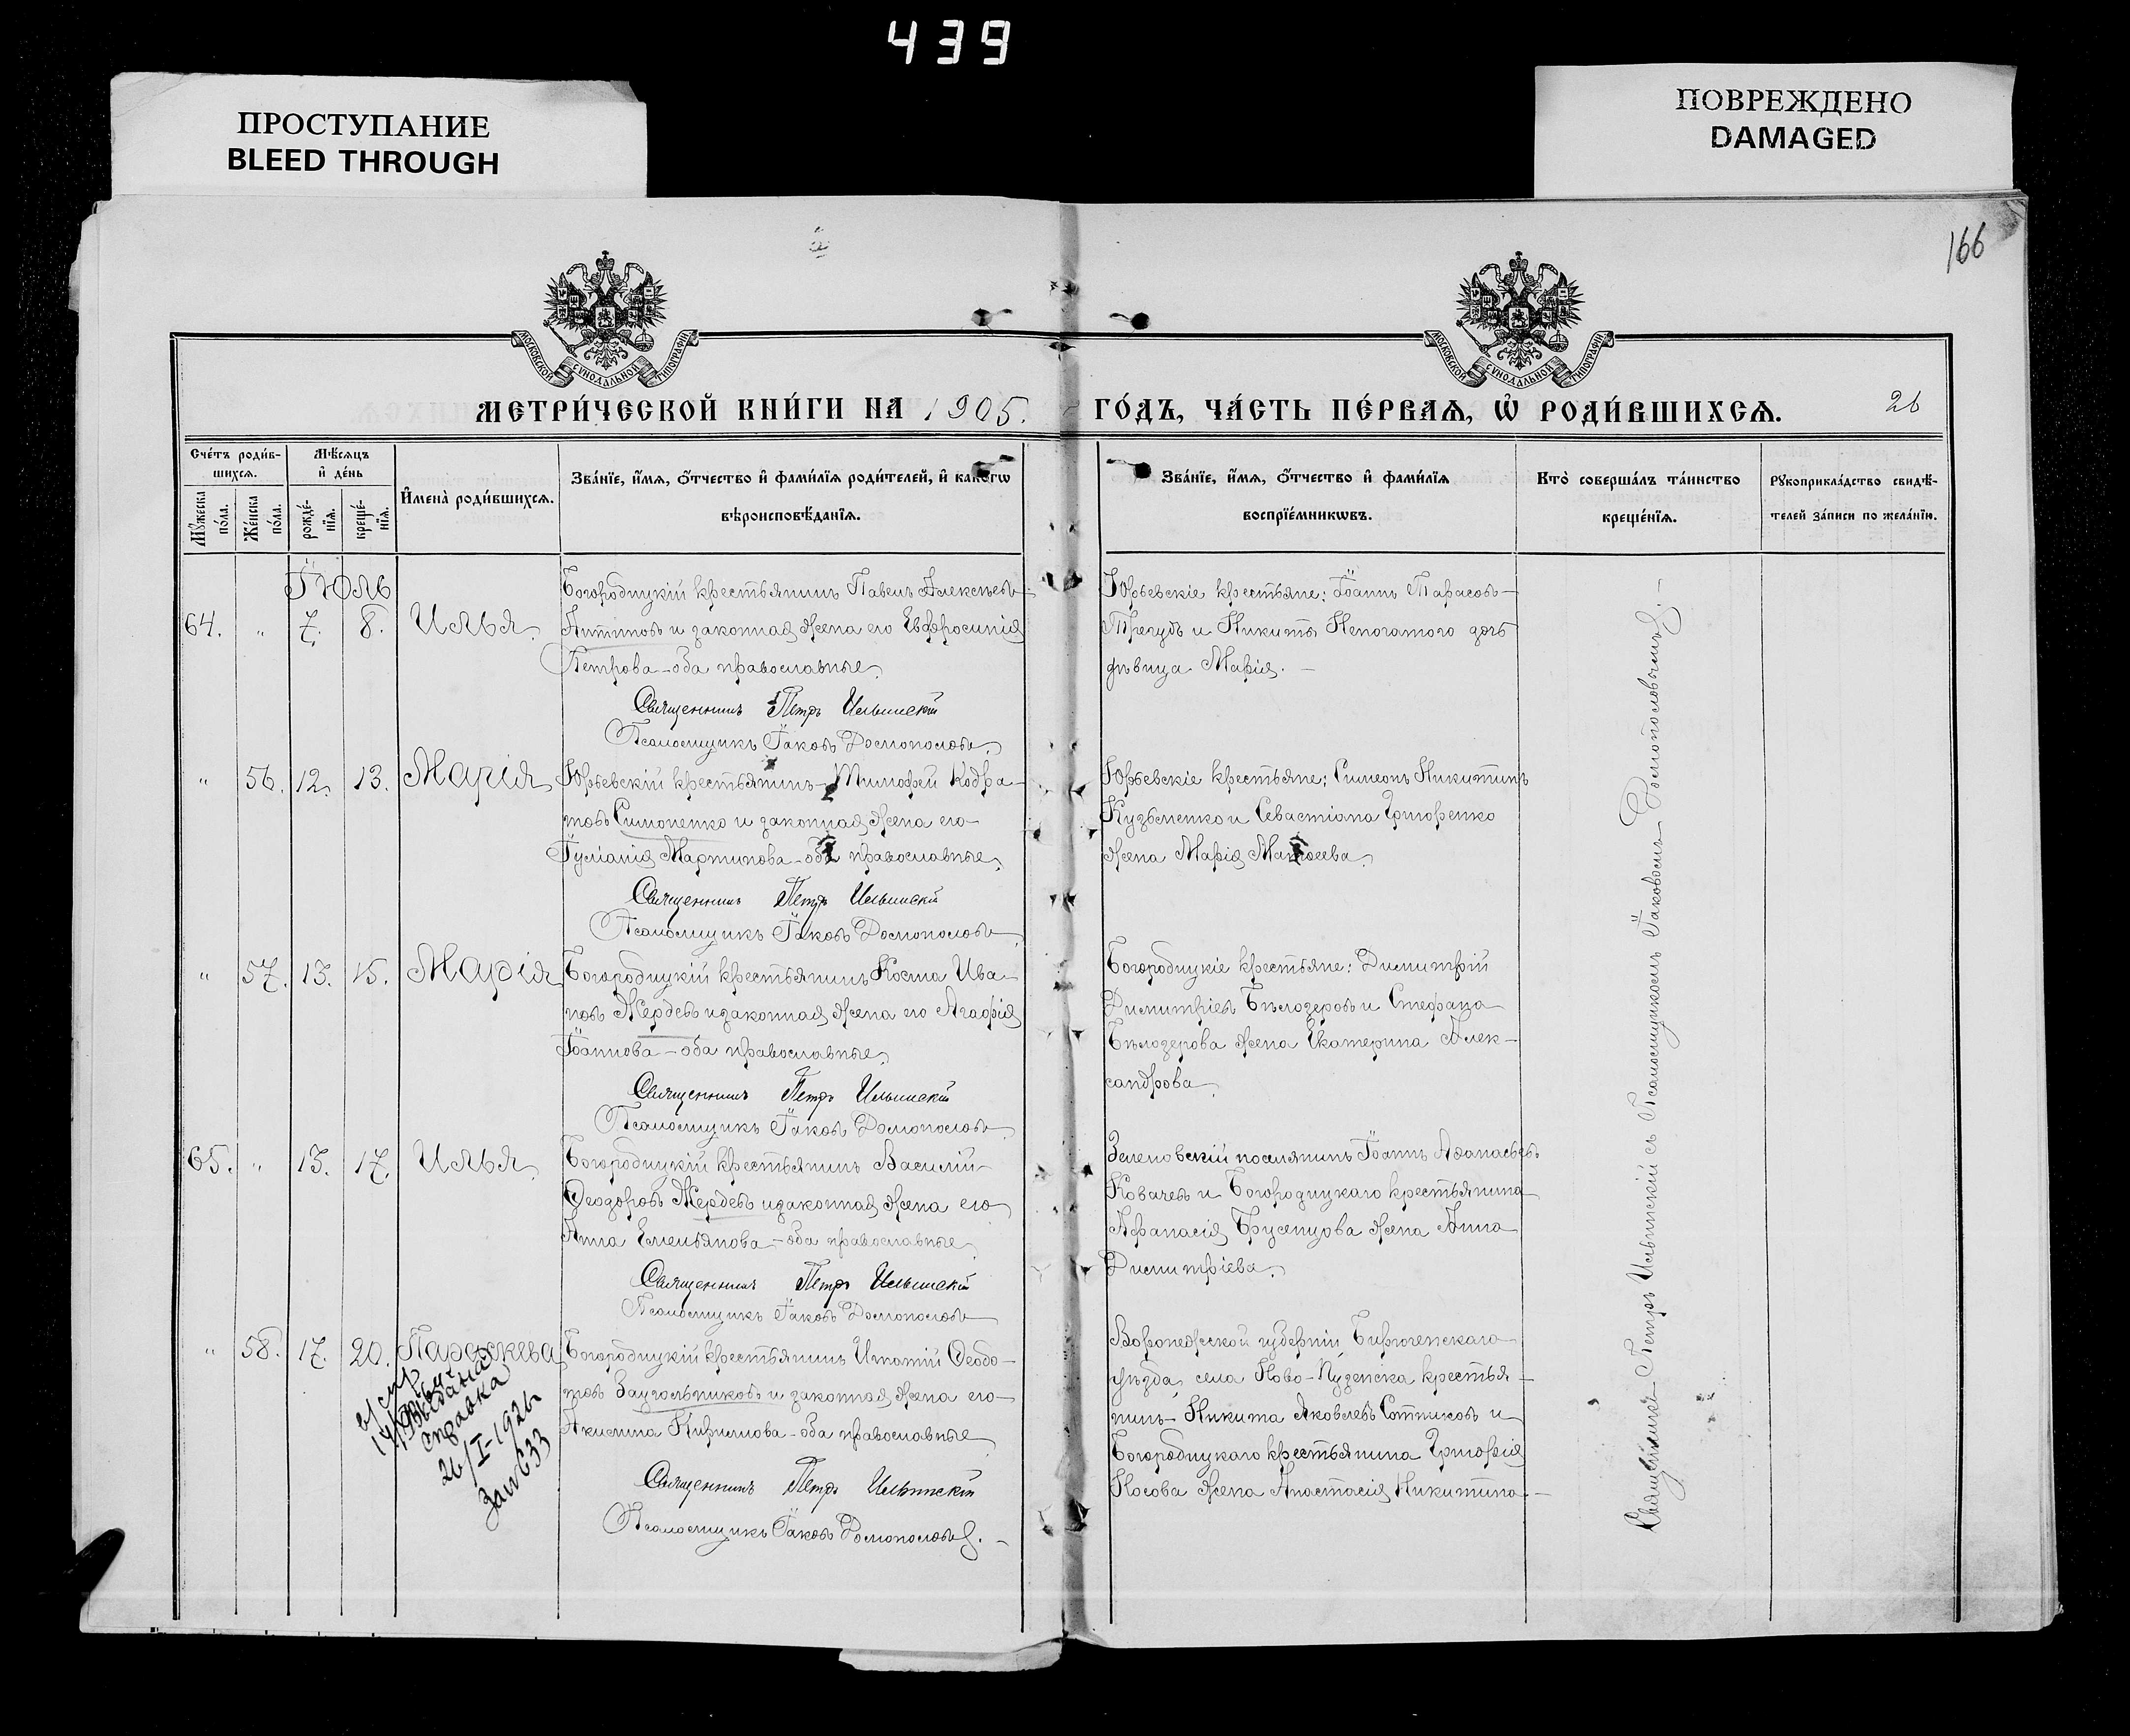 439
ПРОСТУПАНИЕ
BLEED THROUGH
ПОВРЕЖДЕНО
DAMAGED
166
МОСКОВСКОЙ СѴНОДАЛЬНОЙ ТИПОГРАФІИ
МОСКОВСКОЙ СѴНОДАЛЬНОЙ ТИПОГРАФІИ
МЕТРИ́ЧЕСКОЙ КНИ́ГИ НА 1905.
ГО́ДЪ, ЧА́СТЬ ПЕ́РВАѦ, Ѡ҆ РОДИ́ВШИХСѦ.
26
Сче́тъ роди́в-
шихсѧ.
Мꙋ́жеска по́ла.
Же́нска по́ла.
Мѣ́сѧцъ
и҆ де́нь
рожде́-нїѧ.
креще́-нїѧ.
И҆мена̀ роди́вшихсѧ.
Зва́нїе, и҆́мѧ, ѻ҆́тчество и҆ фами́лїѧ роди́телей, и҆ како́гѡ
вѣроисповѣ́данїѧ.
Зва́нїе, и҆́мѧ, ѻ҆́тчество и҆ фами́лїѧ
воспрїе́мникѡвъ.
Кто̀ соверша́лъ та́инство
креще́нїѧ.
Рꙋкоприкла́дство свидѣ́-
телей за́писи по жела́нїю.
Іюль
64. " 7. 8. Илья.
Богородицкій крестьянинъ Павелъ Алексѣевъ
Антиповъ и законная жена его Евфросинія
Петрова – оба православные.
Священникъ Петръ Ильинскій
Псаломщикъ Іаковъ Домополовъ.
Юрьевскіе крестьяне: Іоаннъ Тарасовъ
Трегубъ и Никиты Непочатого дочь
дѣвица Марія. –
" 56. 12. 13. Марія
Юрьевскій крестьянинъ Тимофей Кодра-
товъ Симоненко и законная жена его
Іуліанія Мартинова – оба православные.
Священникъ Петръ Ильинскій
Псаломщикъ Іаковъ Домополовъ
Юрьевскіе крестьяне: Симеонъ Никитинъ
Кузьменко и Севастіана Григоренко
жена Марія Матѳеева.
" 57. 13. 15. Марія
Богородицкій крестьянинъ Косма Ива-
новъ Жердевъ и законная жена его Агафія
Іоаннова – оба православные.
Священникъ Петръ Ильинскій
Псаломщикъ Іаковъ Домополовъ
Богородицкіе крестьяне: Димитрій
Димитріевъ Бѣлозеровъ и Стефана
Бѣлозерова жена Екатерина Алек-
сандрова.
65. " 13. 17. Илья.
Богородицкій крестьянинъ Василій
Ѳеодоровъ Жердевъ и законная жена его
Анна Емельянова – оба православные
Священникъ Петръ Ильинскій
Псаломщикъ Іаковъ Домополовъ
Зеленовскій поселянинъ Іоаннъ Аѳанасьевъ
Ковачевъ и Богородицкаго крестьянина
Афанасія Брусенцова жена Анна
Димитріева.
" 58. 17. 20. Параскева
Богородицкій крестьянинъ Игнатій Ѳеодо-
товъ Заугольниковъ и законная жена его
Акилина Кирилова – оба православные
Священникъ Петръ Ильинскій
Псаломщикъ Іаковъ Домополовъ. –
Воронежской губерніи Бирюченскаго
уѣзда, села Ново- крестья-
нинъ Никита Яковлевъ Сотниковъ и
Богородицкаго крестьянина Григорія
Носова жена Анастасія Никитина. –
Выдана
справка
26/I–1926
633
Священникъ Петръ Ильинскій съ Псаломщикомъ Іаковомъ Домополовымъ. –